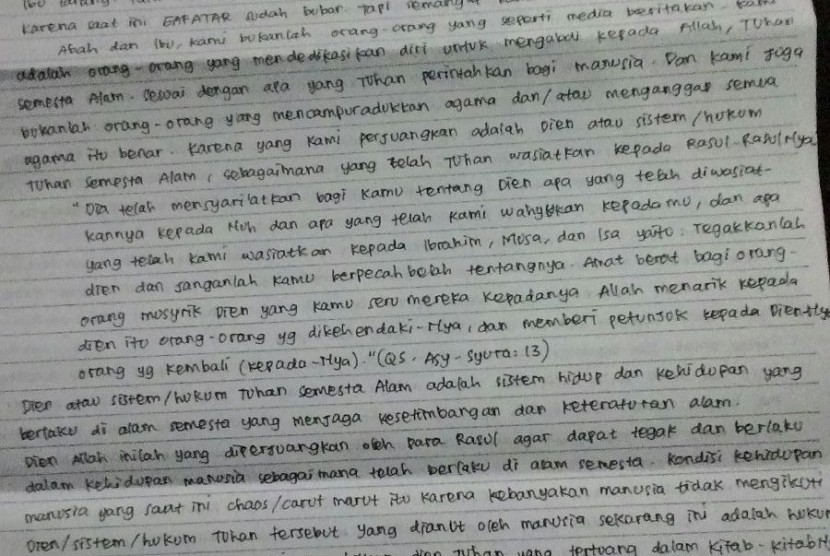 karena saat ini GAFATAR sudah bubar. Tapi semang
Abah dan Ibu, kami bukanlah orang-orang yang seperti media beritakan. kami
adalah orang-orang yang mendedikasikan diri untuk mengabdi kepada Allah, Tuhan
semesta Alam. sesuai dengan apa yang Tuhan perintahkan bagi manusia. Dan kami juga
bukanlah orang-orang yang mencampuradukkan agama dan/atau menganggap semua
agama itu benar. Karena yang kami perjuangkan adalah Dien atau sistem/hukum
Tuhan semesta Alam, sebagaimana yang telah Tuhan wasiatkan kepada Rasul-RasulNya
"Dia telah mensyari'atkan bagi kamu tentang Dien apa yang telah diwasiat-
kannya kepada Nuh dan apa yang telah kami wahyukan kepadamu, dan apa
yang telah kami wasiatkan kepada Ibrahim, Musa, dan Isa yaito: Tegakkanlah
dien dan janganlah kamu berpecah belah tentangnya. Amat berat bagi orang-
orang musyrik Dien yang kamu seru mereka kepadanya. Allah menarik kepada
dien itu orang-orang yg dikehendaki-Nya, dan memberi petunjuk kepada Dien-Nya
orang yg kembali (kepada-Nya)." (QS. Asy-Syura: 13)
Dien atau sistem/hukum Tuhan semesta Alam adalah sistem hidup dan kehidupan yang
berlaku di alam semesta yang menjaga kesetimbangan dan keteraturan alam.
Dien Allah inilah yang diperjuangkan oleh para Rasul agar dapat tegak dan berlaku
dalam kehidupan manusia sebagaimana telah berlaku di alam semesta. Kondisi kehidupan
manusia yang saat ini chaos/carut marut itu karena kebanyakan manusia tidak mengikuti
Dien/sistem/hukum Tuhan tersebut. Yang dianut oleh manusia sekarang ini adalah hukum
Tuhan yang tertuang dalam kitab-kitabN